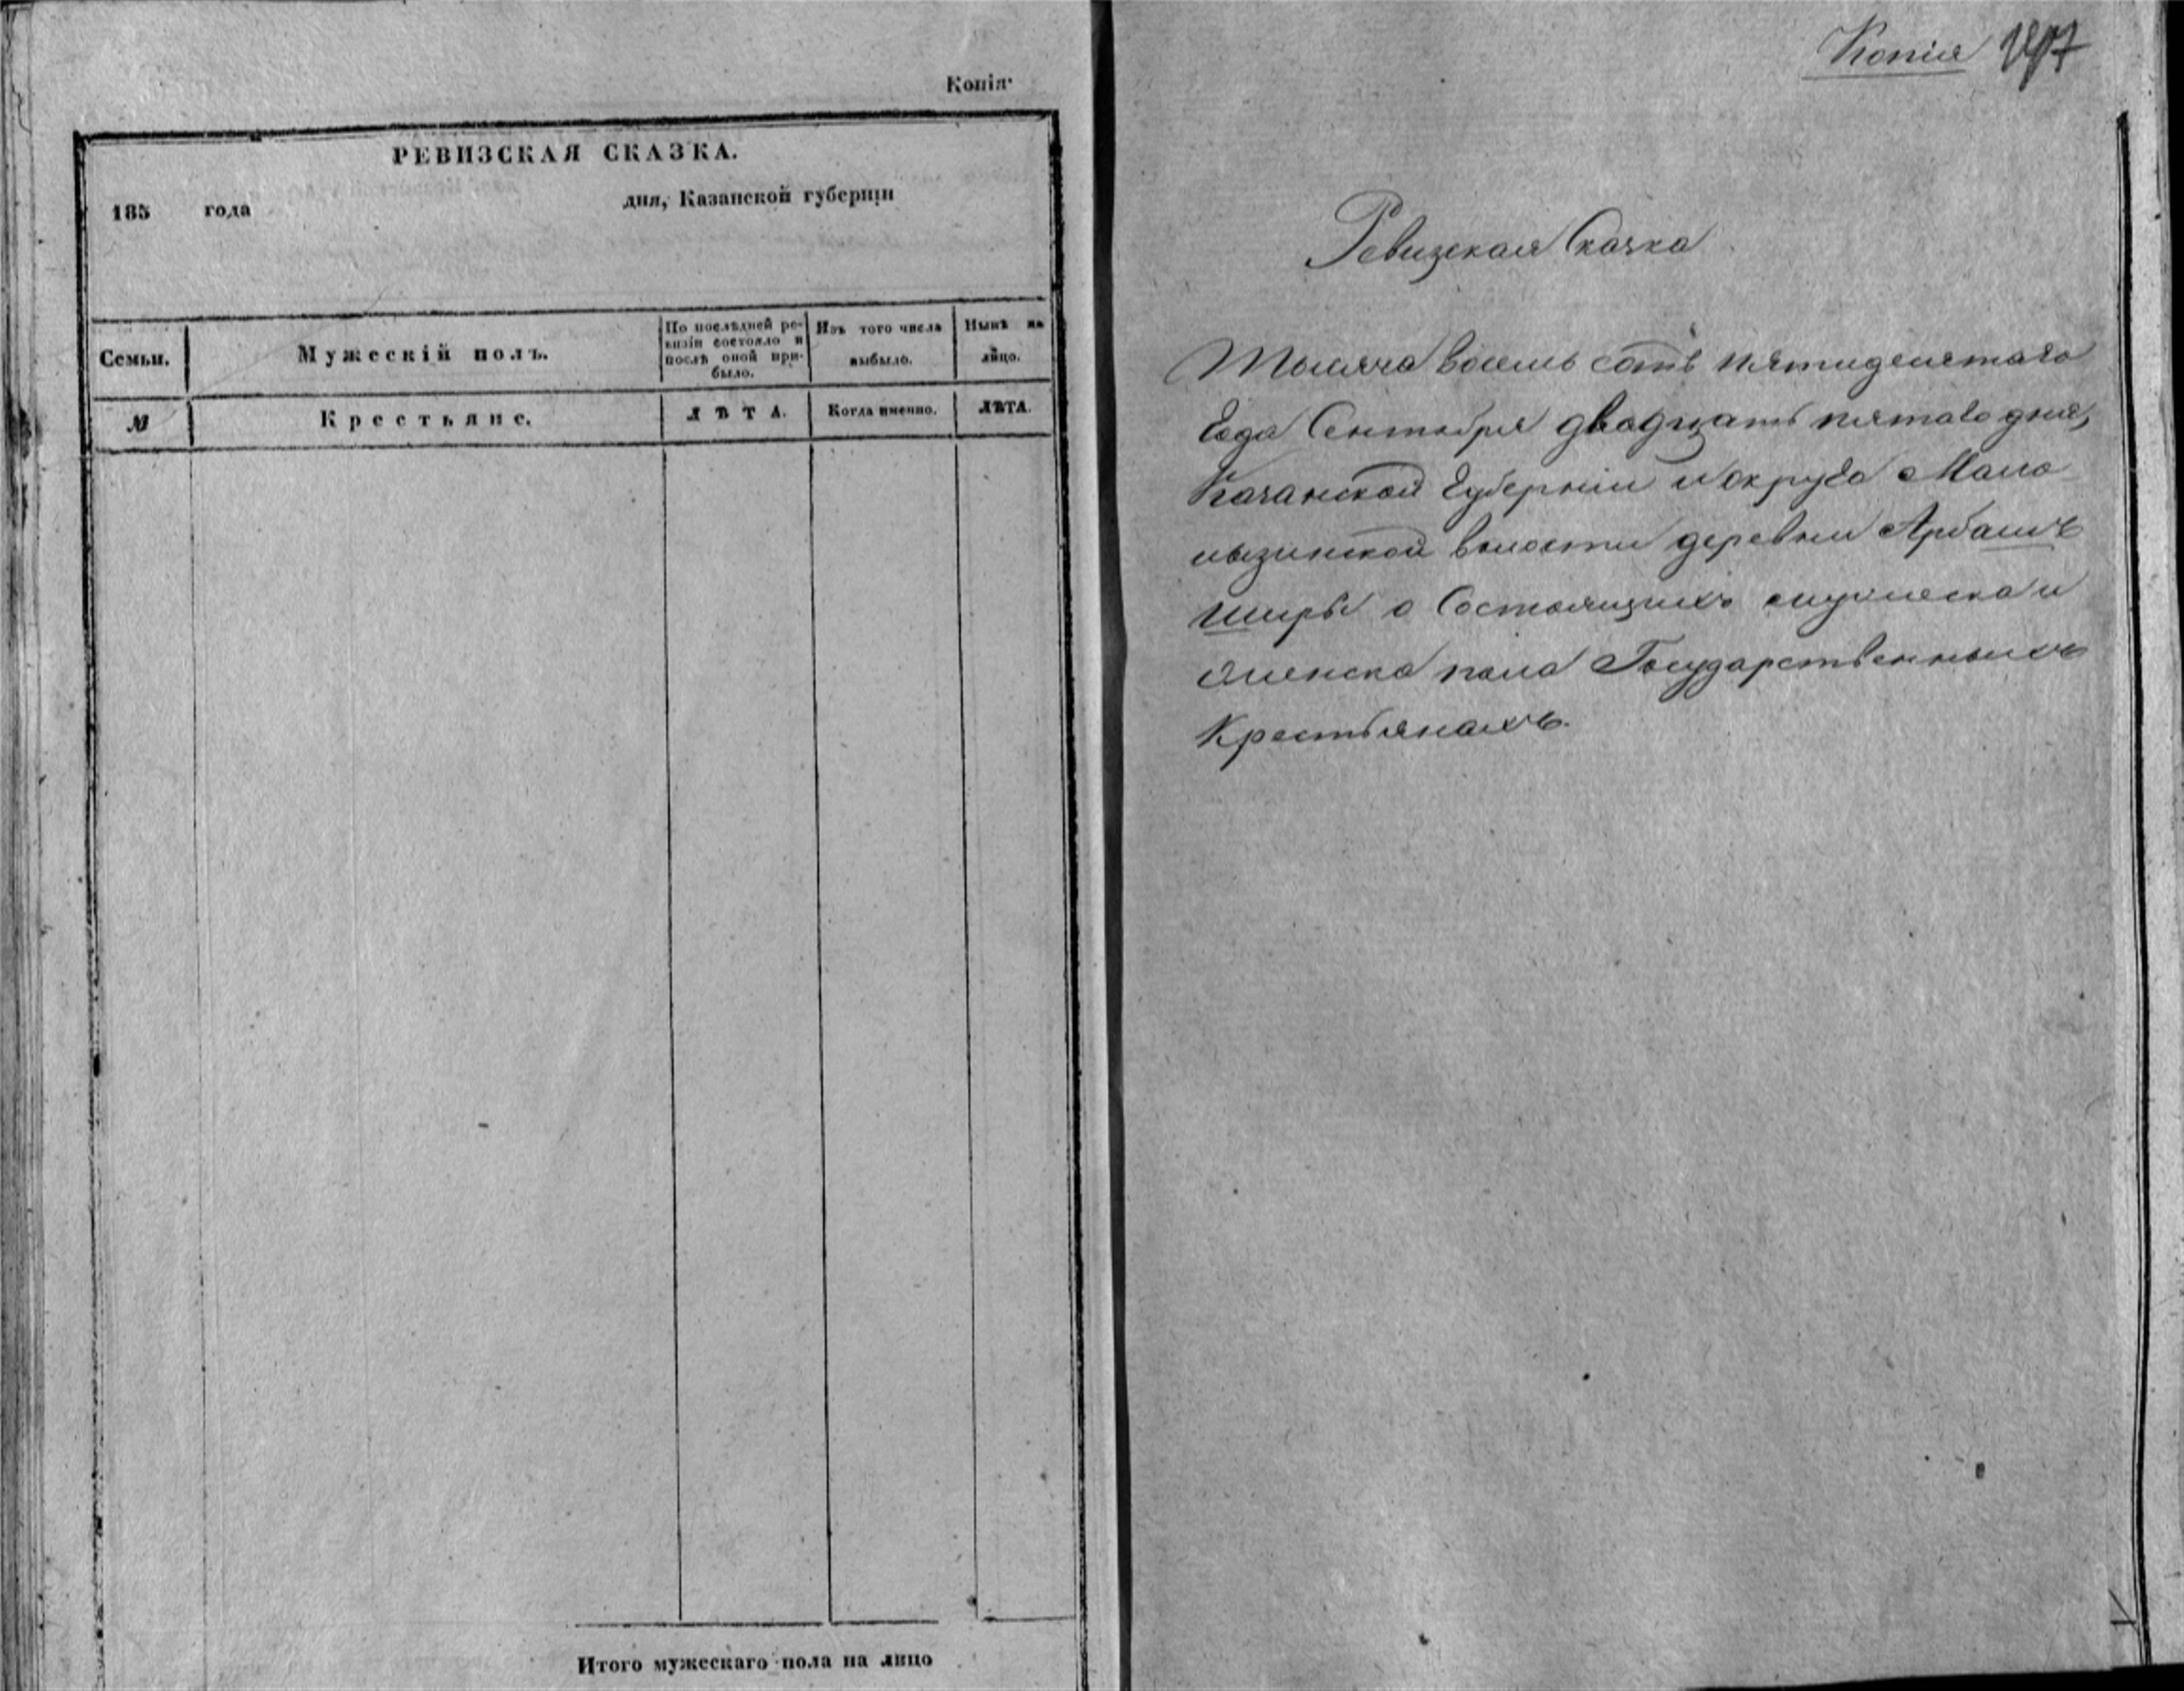 Копія
РЕВИЗСКАЯ СКАЗКА.
185 года дня, Казанской губерніи
Семьи.
Мужескій полъ.
По послѣдней ре-
визіи состояло и
послѣ оной при-
было.
Изъ того числа
выбыло.
Нынѣ на
лицо.
№
Крестьяне.
ЛѢТА.
Когда именно.
ЛѢТА.
Итого мужескаго пола на лицо
Копія
Ревизская Сказка
Тысяча восемь сотъ пятидесятаго
Года Сентября двадцать пятаго дня,
Казанской Губерніи и округа Мало
волости деревни Арбашъ
Ширы о Состоящихъ мужеска и
женска пола Государственныхъ
Крестьянахъ.